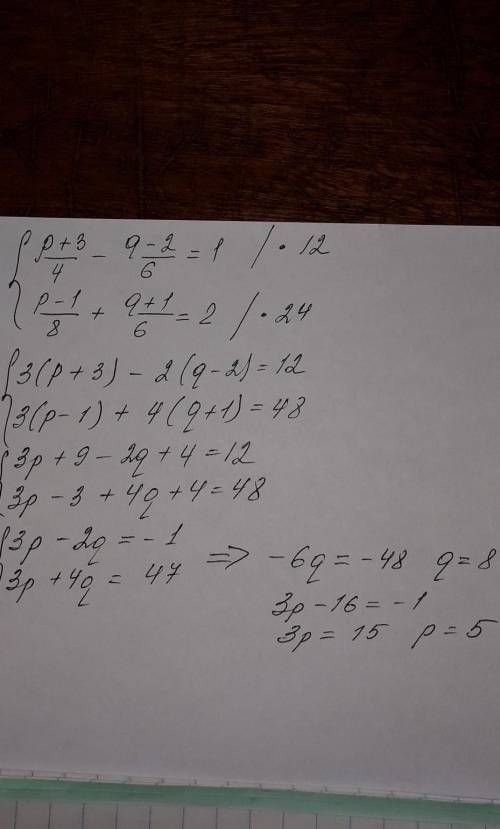 { (p+3)/4 - (q-2)/6 = 1 / · 12
(p-1)/8 + (q+1)/6 = 2 / · 24
{ 3(p+3) - 2(q-2) = 12
3(p-1) + 4(q+1) = 48
{ 3p + 9 - 2q + 4 = 12
3p - 3 + 4q + 4 = 48
{ 3p - 2q = -1
3p + 4q = 47 => -6q = -48 q = 8
3p - 16 = -1
3p = 15 p = 5